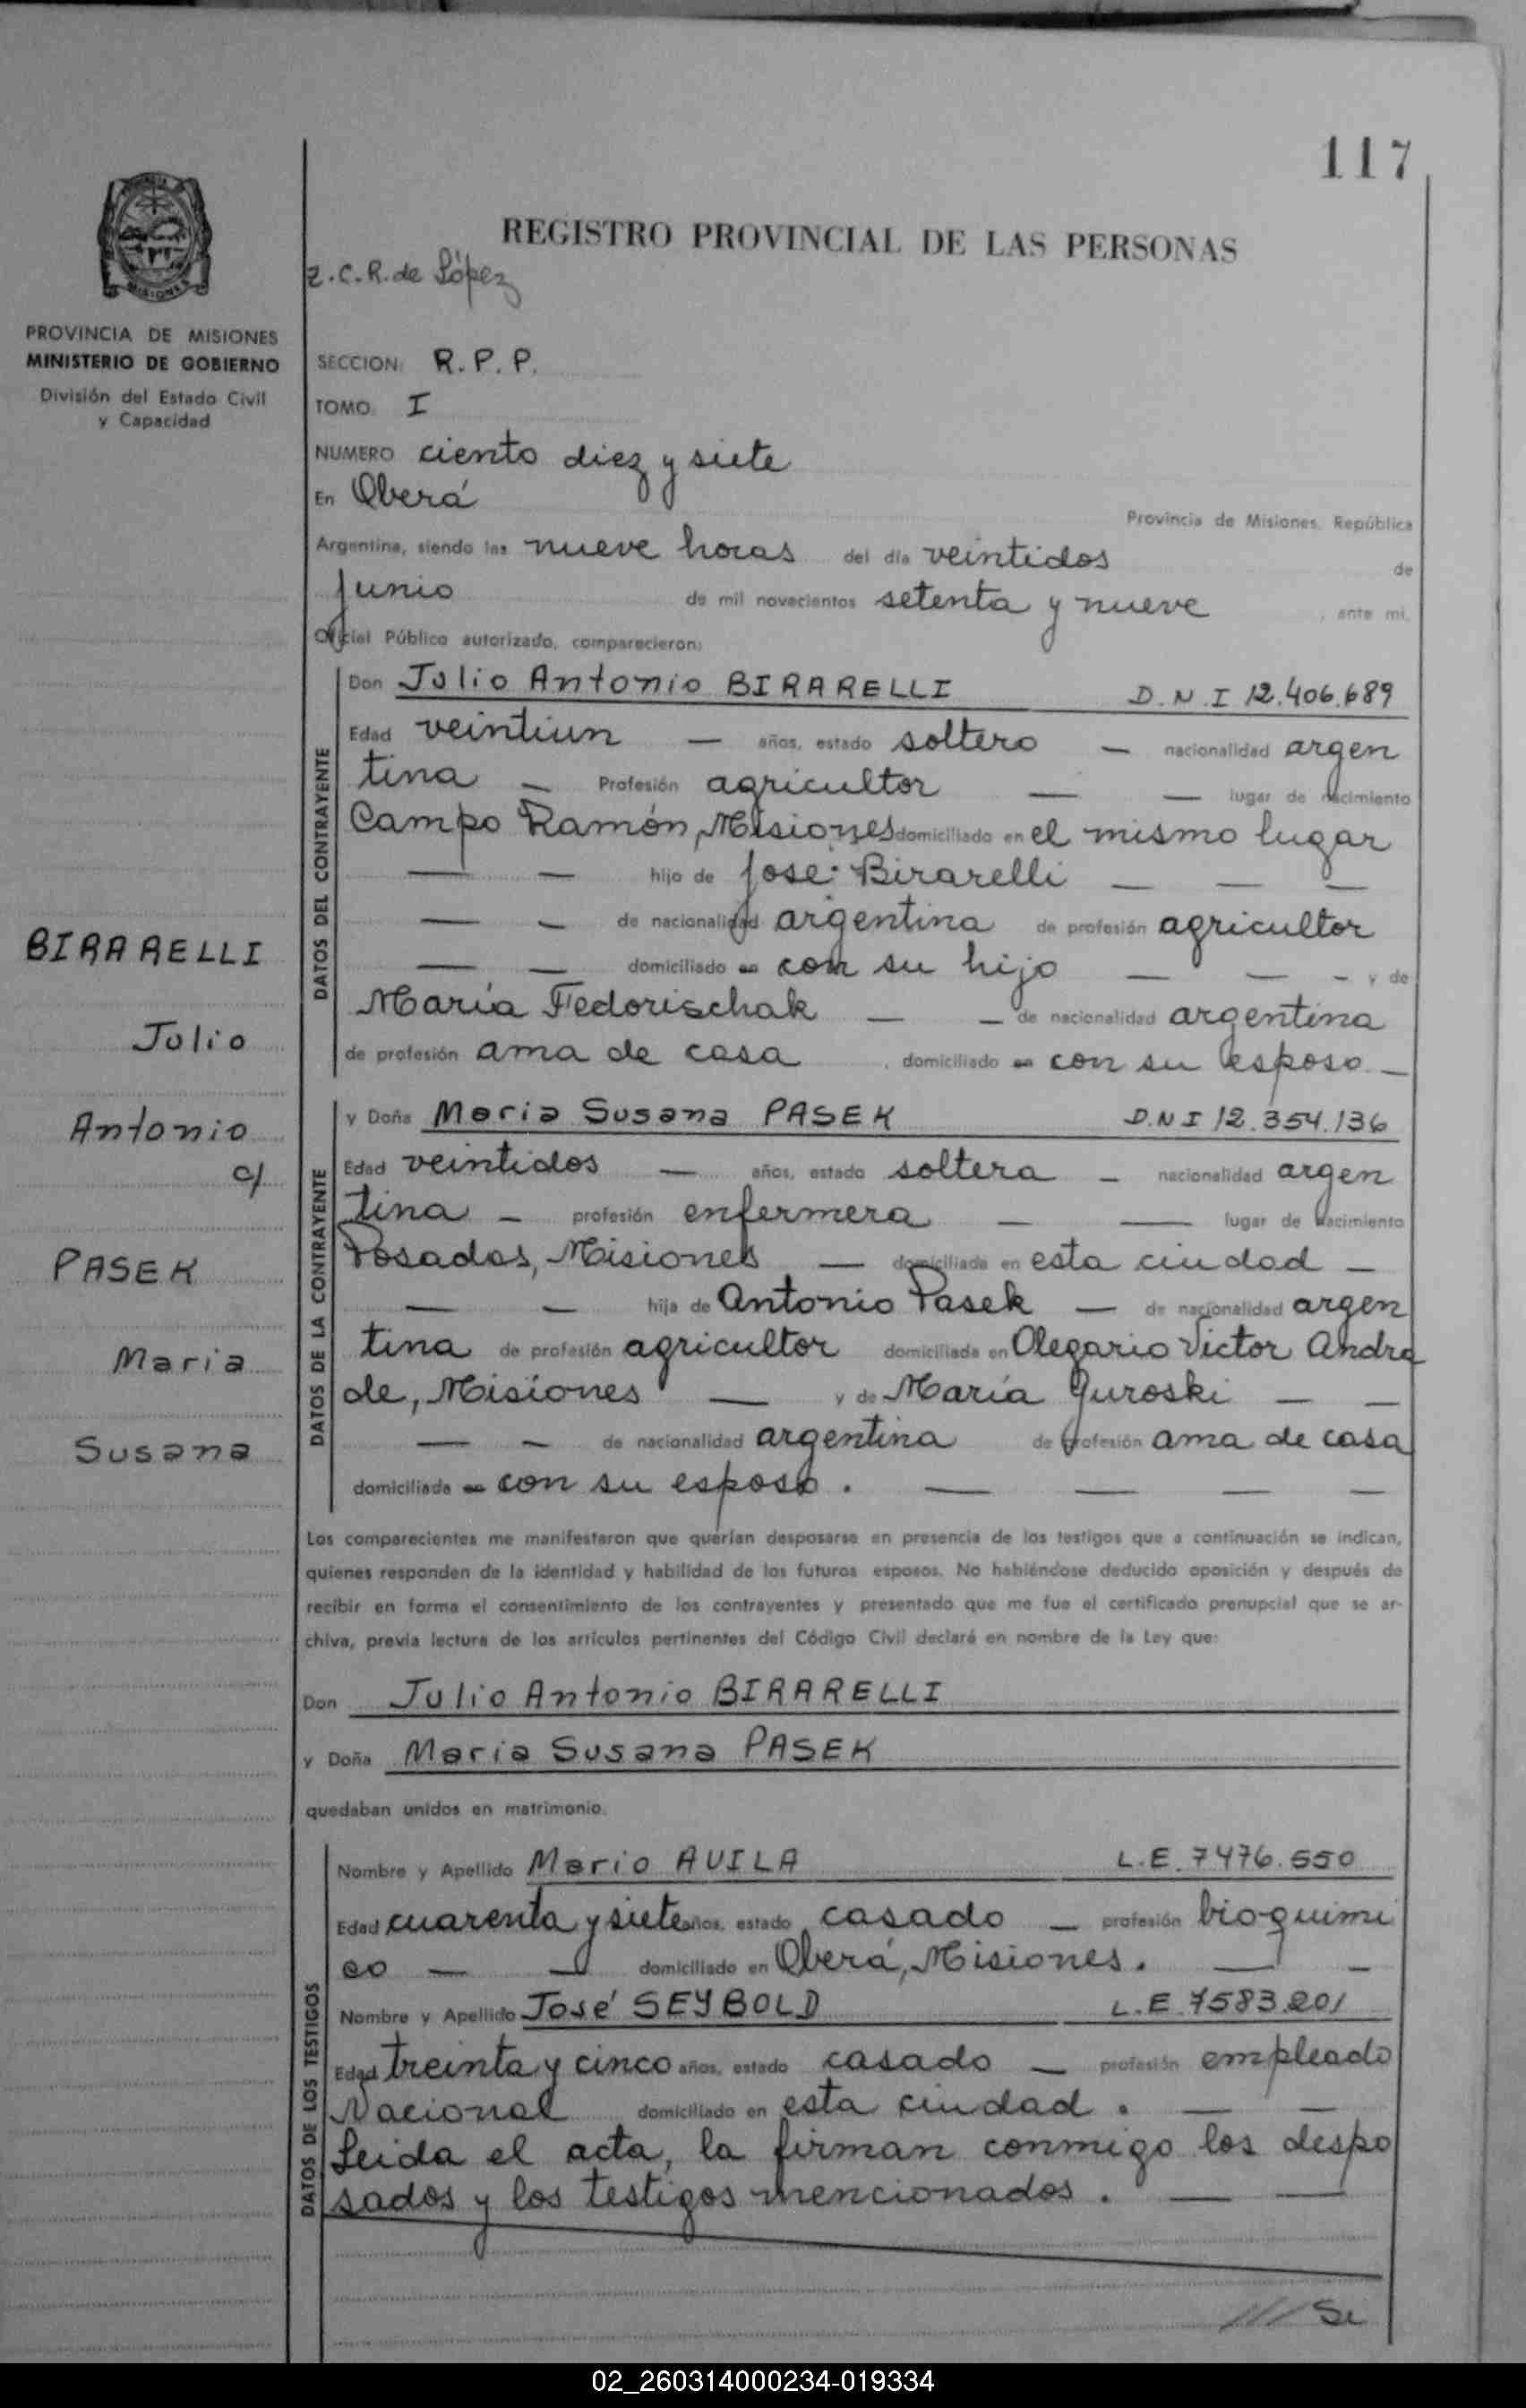 117
REGISTRO PROVINCIAL DE LAS PERSONAS
Z.C.R. de López
PROVINCIA DE MISIONES
MINISTERIO DE GOBIERNO
División del Estado Civil
y Capacidad
SECCION: R.P.P.
TOMO: I
NUMERO ciento diez y siete
En Oberá
Provincia de Misiones, República
Argentina, siendo las nueve horas del día veintidos de
junio de mil novecientos setenta y nueve, ante mí,
Oficial Público autorizado, comparecieron:
BIRARELLI
Julio
Antonio
c/
PASEK
Maria
Susana
DATOS DEL CONTRAYENTE
Don Julio Antonio BIRARELLI D.N.I 12.406.689
Edad veintiun — años, estado soltero — nacionalidad argen
tina — Profesión agricultor — — lugar de nacimiento
Campo Ramón, Misiones domiciliado en el mismo lugar
— — hijo de José Birarelli — — —
— — de nacionalidad argentina de profesión agricultor
— — domiciliado en con su hijo — — - y de
María Fedorischak — — de nacionalidad argentina
de profesión ama de casa, domiciliado en con su esposo —
DATOS DE LA CONTRAYENTE
y Doña Maria Susana PASEK D.N.I 12.354.136
Edad veintidos — años, estado soltera — nacionalidad argen
tina — profesión enfermera — — lugar de nacimiento
Posadas, Misiones — domiciliada en esta ciudad —
— — hija de Antonio Pasek — de nacionalidad argen
tina de profesión agricultor domiciliada en Olegario Victor Andra
de, Misiones — y de María Guroski — —
— — de nacionalidad argentina de profesión ama de casa
domiciliada en con su esposo. — — — —
Los comparecientes me manifestaron que querían desposarse en presencia de los testigos que a continuación se indican,
quienes responden de la identidad y habilidad de los futuros esposos. No habiéndose deducido oposición y después de
recibir en forma el consentimiento de los contrayentes y presentado que me fue el certificado prenupcial que se ar-
chiva, previa lectura de los artículos pertinentes del Código Civil declaré en nombre de la Ley que:
Don Julio Antonio BIRARELLI
y Doña Maria Susana PASEK
quedaban unidos en matrimonio.
DATOS DE LOS TESTIGOS
Nombre y Apellido Mario AVILA L.E. 7476.550
Edad cuarenta y siete años, estado casado — profesión bioquimi
co — — domiciliado en Oberá, Misiones. — —
Nombre y Apellido José SEYBOLD L.E. 7583.201
Edad treinta y cinco años, estado casado — profesión empleado
Nacional domiciliado en esta ciudad. — —
Leida el acta, la firman conmigo los despo
sados y los testigos mencionados. — —
/// Si
02_260314000234-019334